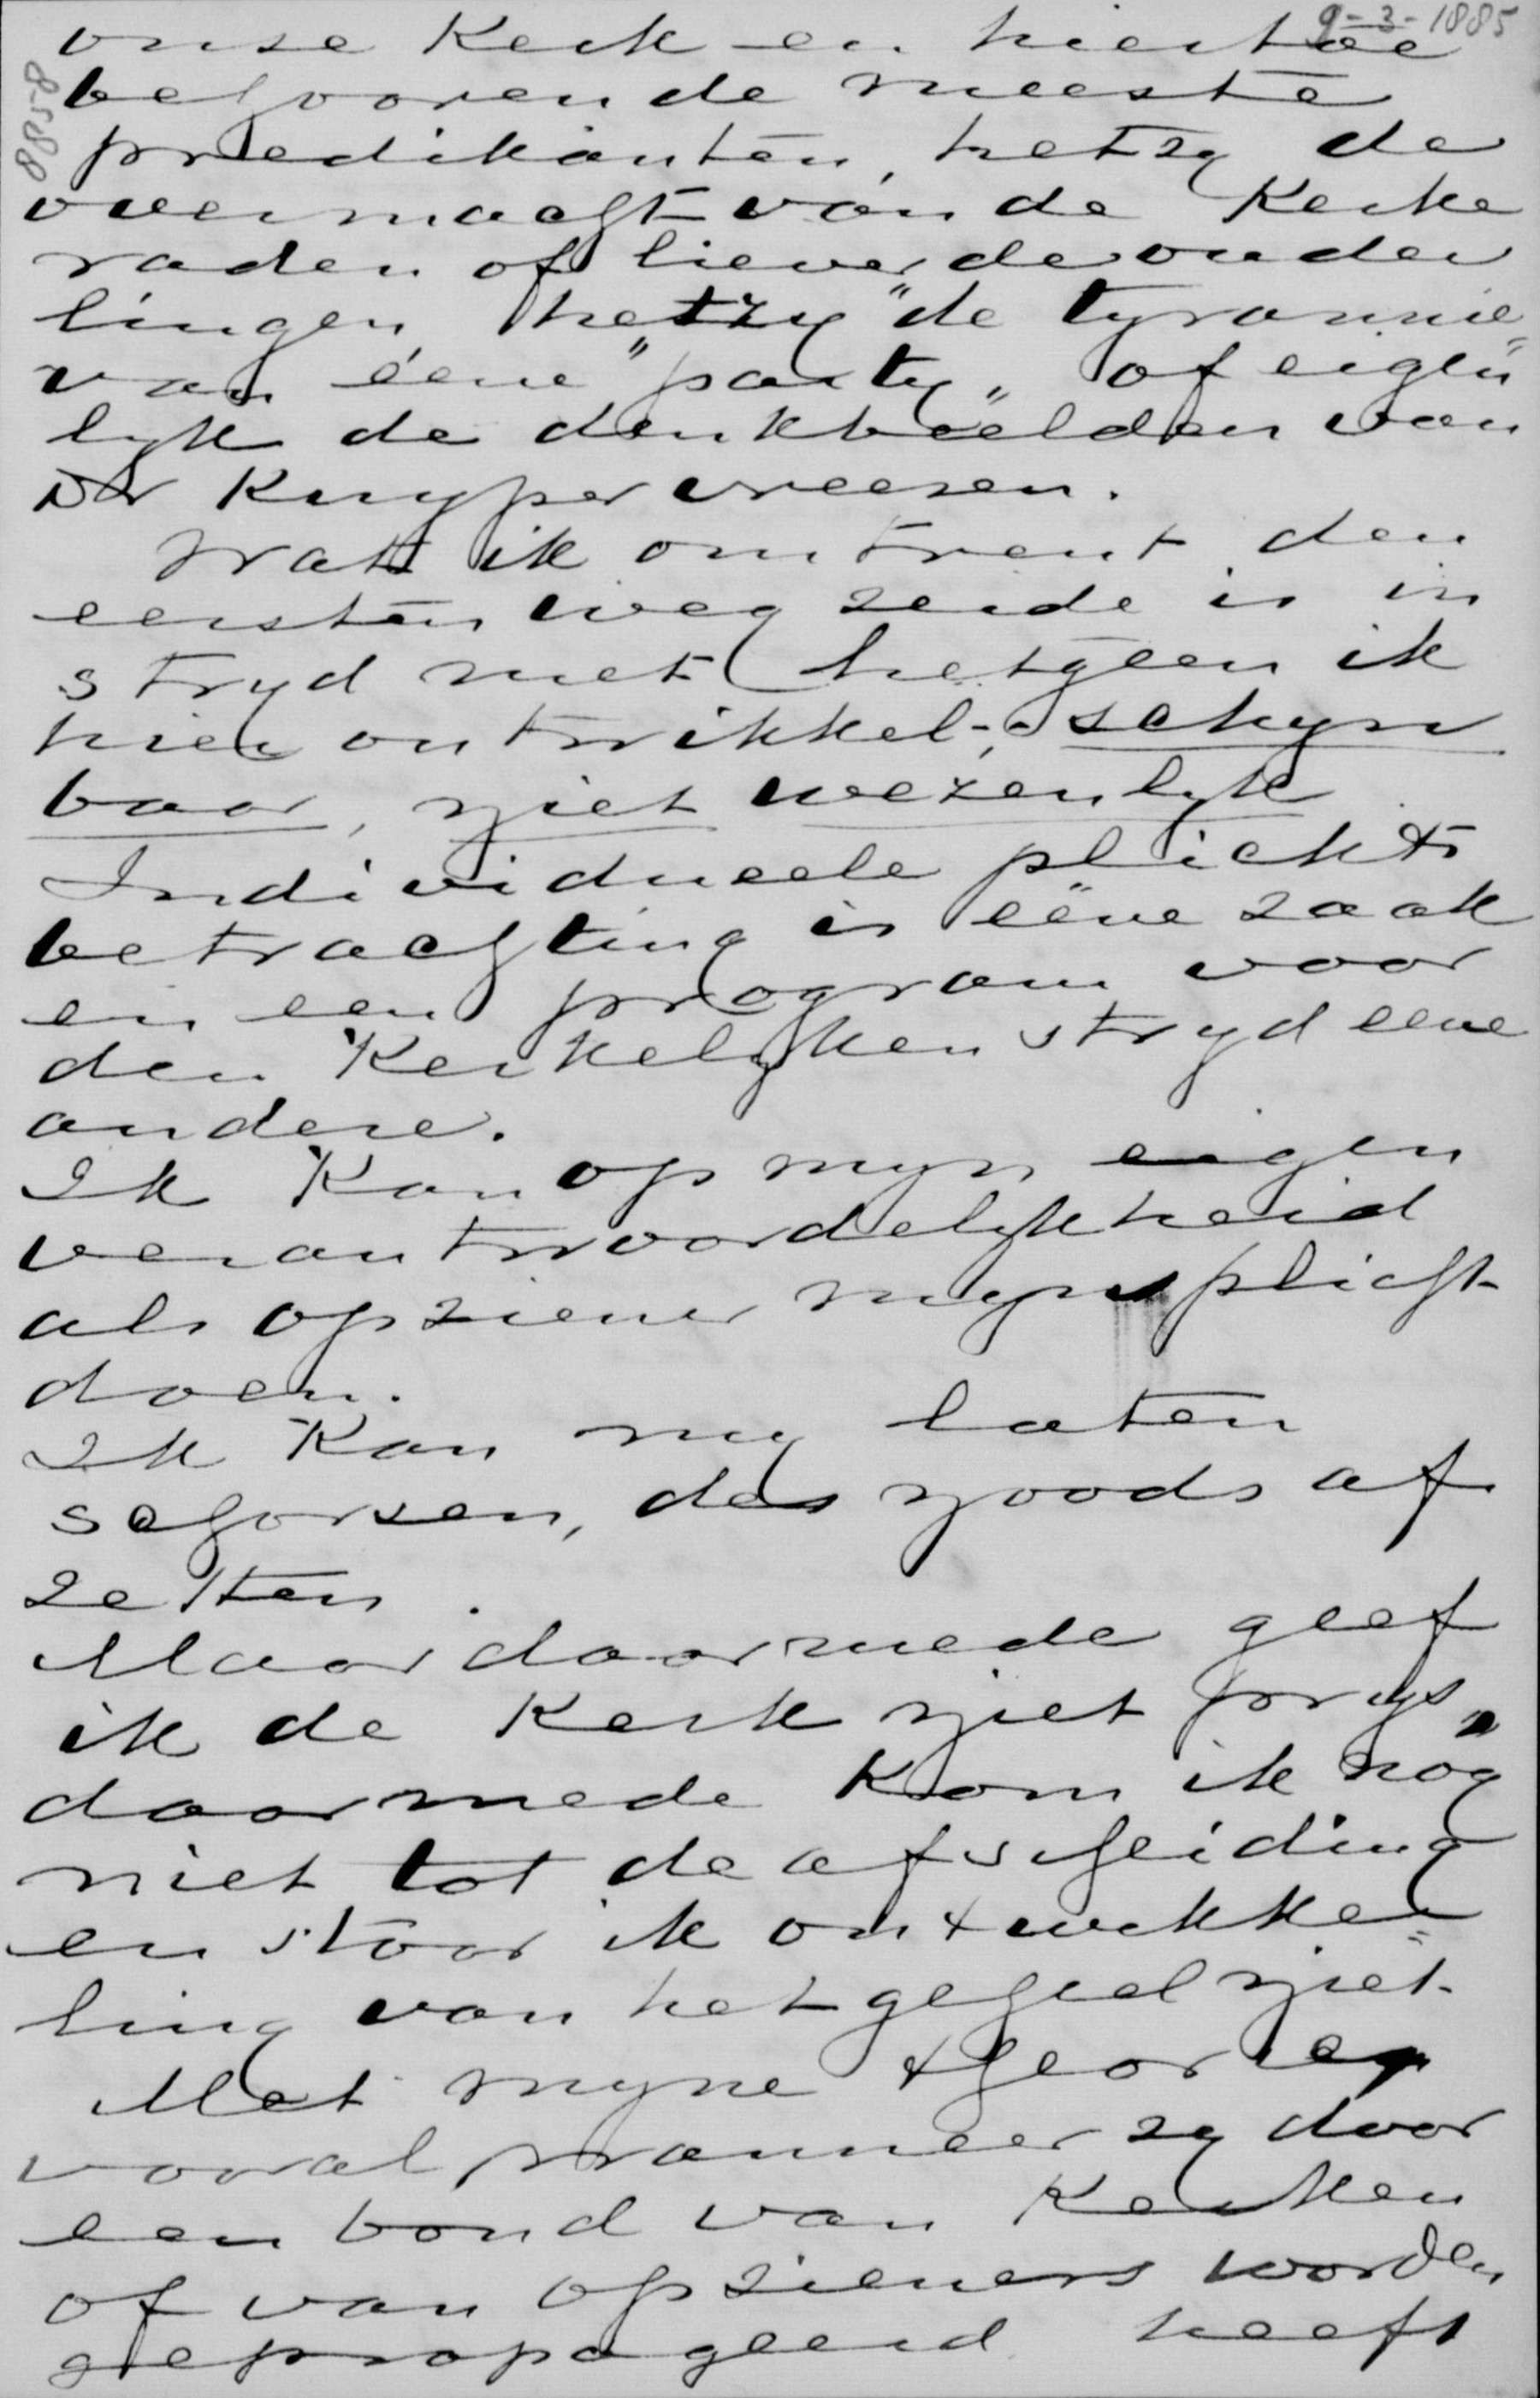 9-3-1885
8588
onse Kerk en hiertoe
behoorende meeste
predikanten, hetzy de
overmacht van de Kerke
raden of liever de ouder
lingen, hetzy "de tyrannie
van éene "party" of eigen
lyk de denkbeelden van
Dr Kuyper vreezen.
Wat ik omtrent den
eersten weg zeide is in
stryd met hetgeen ik
hier ontwikkel; schyn
baar, niet wezenlyk
Individueele plichts
betrachting is ééne zaak
en een program voor
den Kerkelyken stryd eene
andere.
Ik Kan op myn eigen
verantwoordelykheid
als opziener myn plicht
doen.
Ik Kan my laten
schorsen, des noods af
zetten.
Maar daarmede geef
ik de Kerk niet prys,
daarmede Kom ik nog
niet tot de afscheiding
en stoor ik ontwikke
ling van het geheel niet.
Met myne theorie
vooral wanneer zy door
een bond van Kerken
of van opzieners worden
gepropageerd heeft